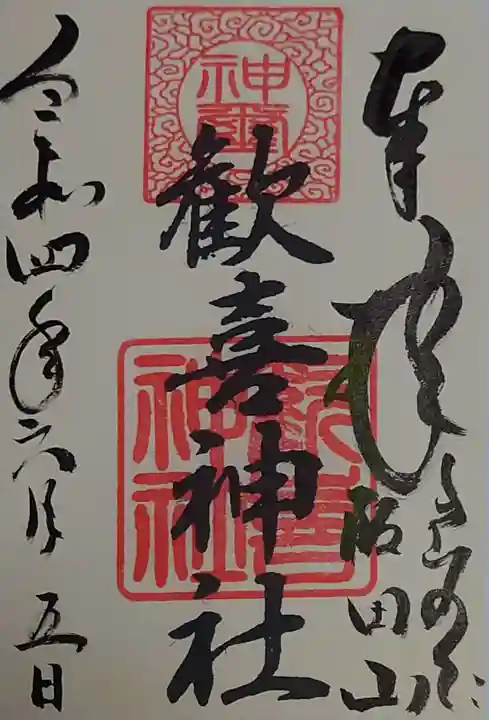 奉拝
阪田山
歓喜神社
神璽
歓喜神社
令和四年六月五日